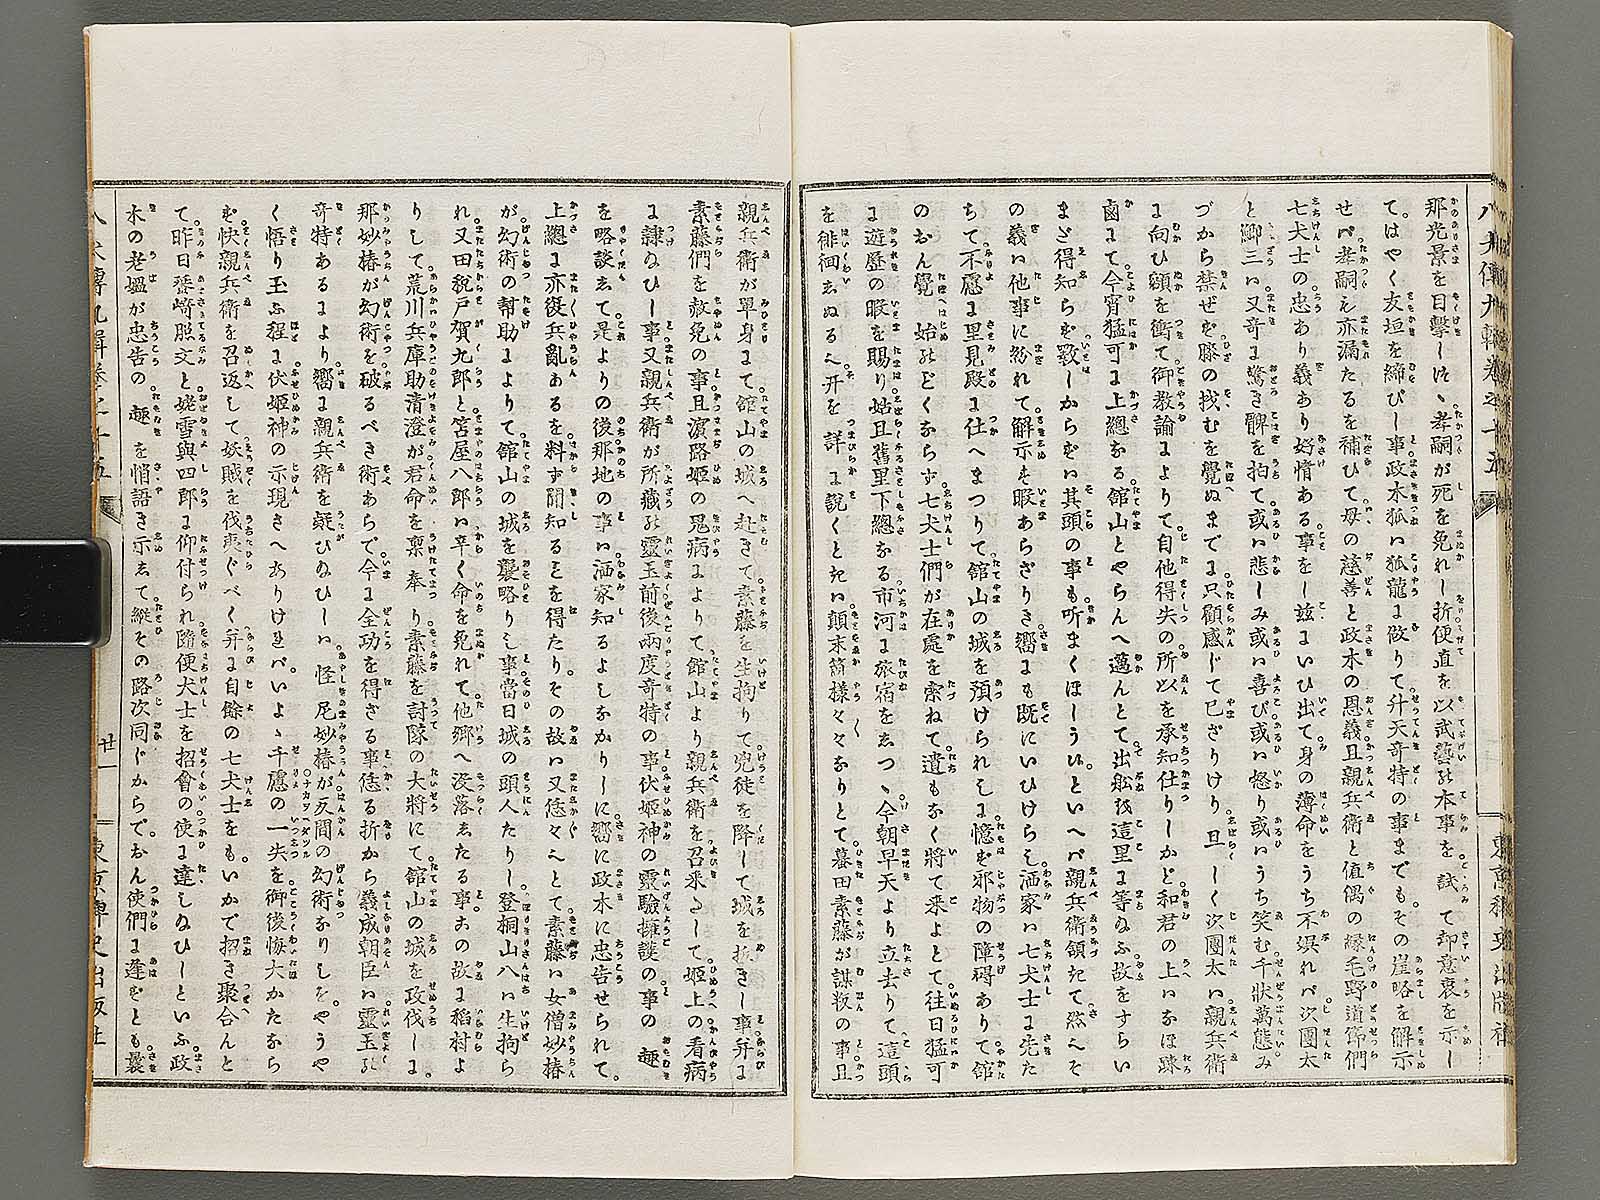 八犬傳九輯卷之十五
東京稗史出版社
那光景を目擊しつゝ孝嗣が死を免れし折便直を以武藝の本事を試て却意衷を示し
てはやく友垣を締びし事政木狐い狐龍に做りて升天奇特の事までもその崖略を解示
せバ孝嗣も亦漏たるを補ひて母の慈善と政木の恩義且親兵衛と值偶の縁毛野道節們
七犬士の忠あり義あり好情ある事をし茲にいひ出て身の薄命をうち不娯れバ次團太
と鯽三い又奇に驚き髀を拍て或い悲しみ或い喜び或い怒り或いうち笑む千狀萬態み
づから禁ぜず膝の找むを覺ぬまでに只顧感じて已ざりけり且しく次團太い親兵衛
に向ひ額を衝て御教諭によりて自他得失の所以を承知仕りしかど和君の上いなほ踈
鹵にて今宵猛可に上總なる館山とやらんへ邁んとて出船を這里に等ぬふ故をすらい
まだ得知らず歉しからずい其頭の事も听まくほしういといへバ親兵衛領きて然へそ
の義い他事に紛れて解示す暇あらざりき嚮にも既にいひけらく洒家い七犬士に先た
ちて不慮に里見殿に仕へまつりて館山の城を預けられしに憶ず邪物の障碍ありて館
のおん覺始のどくならず七犬士們が在處を索ねて遺もなく將て來よとて往日猛可
に遊歷の暇を賜り姑且舊里下總なる市河に旅宿をゑつゝ今朝早天より立去りて這頭
を徘徊ゑぬるへ开を詳に說くとたい顚末箇樣々々なりとて蟇田素藤が謀叛の事且
親兵衛が單身にて館山の城へ赴きて素藤を生拘りて兇徒を降して城を拔きし事幷に
素藤們を赦免の事且濱路姬の鬼病によりて館山より親兵衛を召釆として姬上の看病
に隷ぬひし事又親兵衛が所藏の靈玉前後兩度奇特の事伏姬神の靈驗擁護の事の趣
を略談ゑて是よりの後那地の事い洒家知るよしなかりしに嚮に政木に忠告せられて
上總に亦復兵亂あるを料ず聞知るとを得たりその故い又恁々へとて素藤い女僧妙椿
が幻術の幫助によりて館山の城を襲略りし事當日城の頭人たりし登桐山八い生拘ら
れ又田稅戶賀九郎と苫屋八郎い辛く命を免れて他郷へ沒落ゑたる事この故に稻村よ
りして荒川兵庫助清澄が君命を稟奉り素藤を討隊の大將にて館山の城を政伐しに
那妙椿が幻術を破るべき術あらで今に全功を得ざる事恁る折から義成朝臣い靈玉の
奇特あるにより嚮に親兵衛を疑ひぬひしい怪尼妙椿が反間の幻術なりしをやうや
く悟り玉ふ程に伏姬神の示現さへありけれバいよゝ千慮の一失を御後悔大かたなら
ず快親兵衛を召返して妖賊を伐夷ぐべく幷に自餘の七犬士をもいかで招き聚合んと
て昨日蜑崎照文と姥雪與四郎に仰付られ隨便犬士を招會の使に達しぬひしといふ政
木の老媼が忠告の趣を悄語き示ゑて縱その路次同じからでおん使們に逢ずとも曩
八犬傳九輯卷之十五
廿一
東京稗史出版社